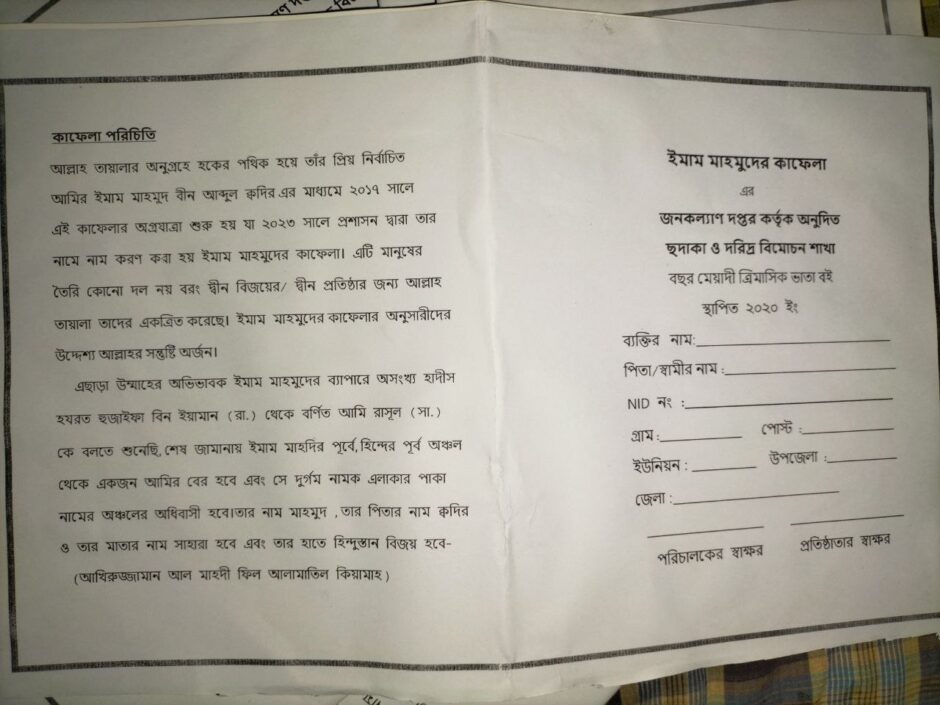 কাফেলা পরিচিতি
আল্লাহ তায়ালার অনুগ্রহে হকের পথিক হয়ে তাঁর প্রিয় নির্বাচিত
আমির ইমাম মাহমুদ বীন আব্দুল ক্বদির এর মাধ্যমে ২০১৭ সালে
এই কাফেলার অগ্রযাত্রা শুরু হয় যা ২০২৩ সালে প্রশাসন দ্বারা তার
নামে নাম করণ করা হয় ইমাম মাহমুদের কাফেলা। এটি মানুষের
তৈরি কোনো দল নয় বরং দ্বীন বিজয়ের/ দ্বীন প্রতিষ্ঠার জন্য আল্লাহ
তায়ালা তাদের একত্রিত করেছে। ইমাম মাহমুদের কাফেলার অনুসারীদের
উদ্দেশ্য আল্লাহর সন্তুষ্টি অর্জন।
এছাড়া উম্মাহের অভিভাবক ইমাম মাহমুদের ব্যাপারে অসংখ্য হাদীস
হযরত হুজাইফা বিন ইয়ামান (রা.) থেকে বর্ণিত আমি রাসূল (সা.)
কে বলতে শুনেছি, শেষ জামানায় ইমাম মাহদির পূর্বে, হিন্দের পূর্ব অঞ্চল
থেকে একজন আমির বের হবে এবং সে দুর্গম নামক এলাকার পাকা
নামের অঞ্চলের অধিবাসী হবে।তার নাম মাহমুদ , তার পিতার নাম ক্বদির
ও তার মাতার নাম সাহারা হবে এবং তার হাতে হিন্দুস্তান বিজয় হবে-
(আখিরুজ্জামান আল মাহদী ফিল আলামাতিল কিয়ামাহ )
ইমাম মাহমুদের কাফেলা
এর
জনকল্যাণ দপ্তর কর্তৃক অনুদিত
ছদাকা ও দরিদ্র বিমোচন শাখা
বছর মেয়াদী ত্রিমাসিক ভাতা বই
স্থাপিত ২০২০ ইং
ব্যক্তির নাম:
পিতা/স্বামীর নাম :
NID নং :
গ্রাম: পোস্ট :
ইউনিয়ন : উপজেলা :
জেলা :
পরিচালকের স্বাক্ষর প্রতিষ্ঠাতার স্বাক্ষর